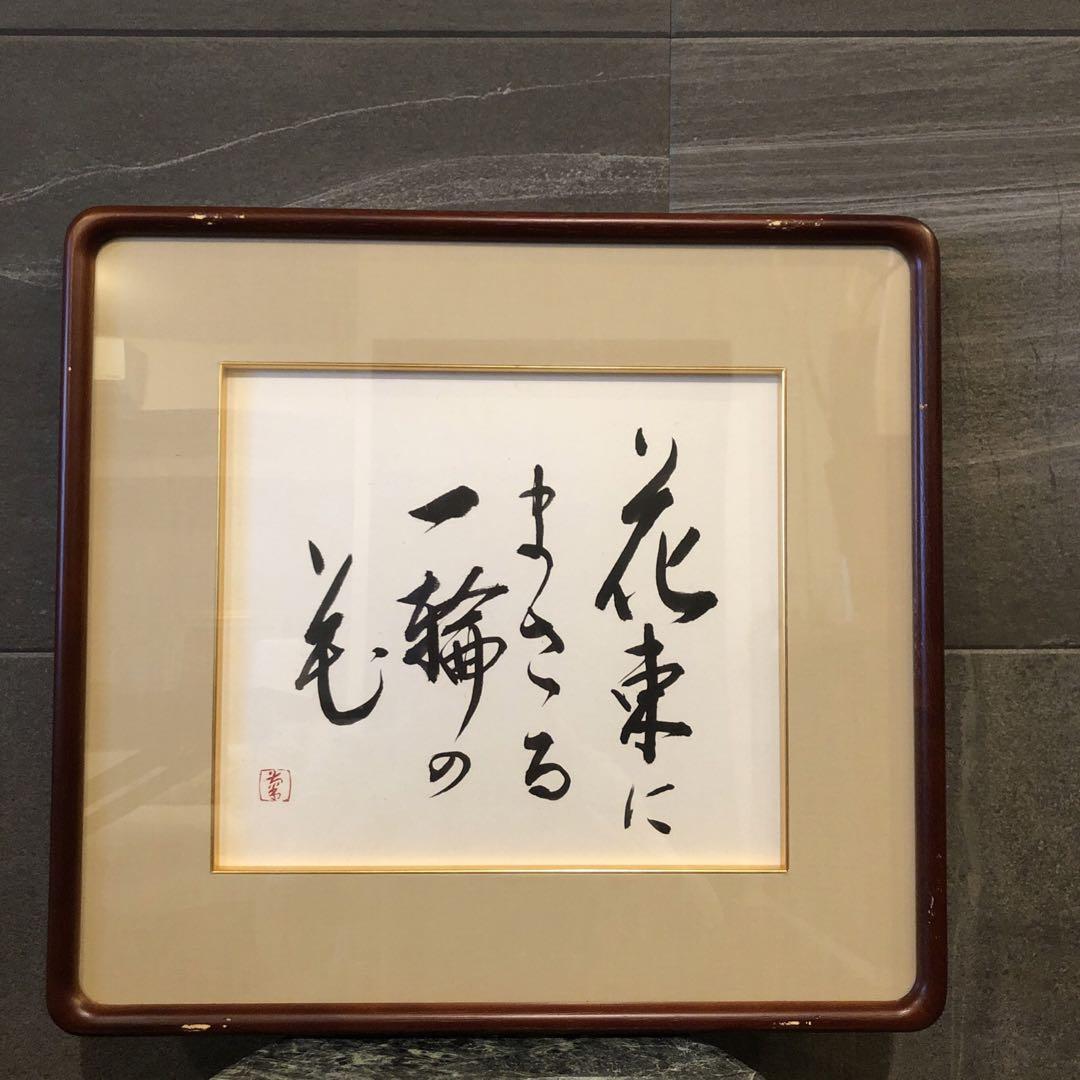 花束に
まさる
一輪の
花